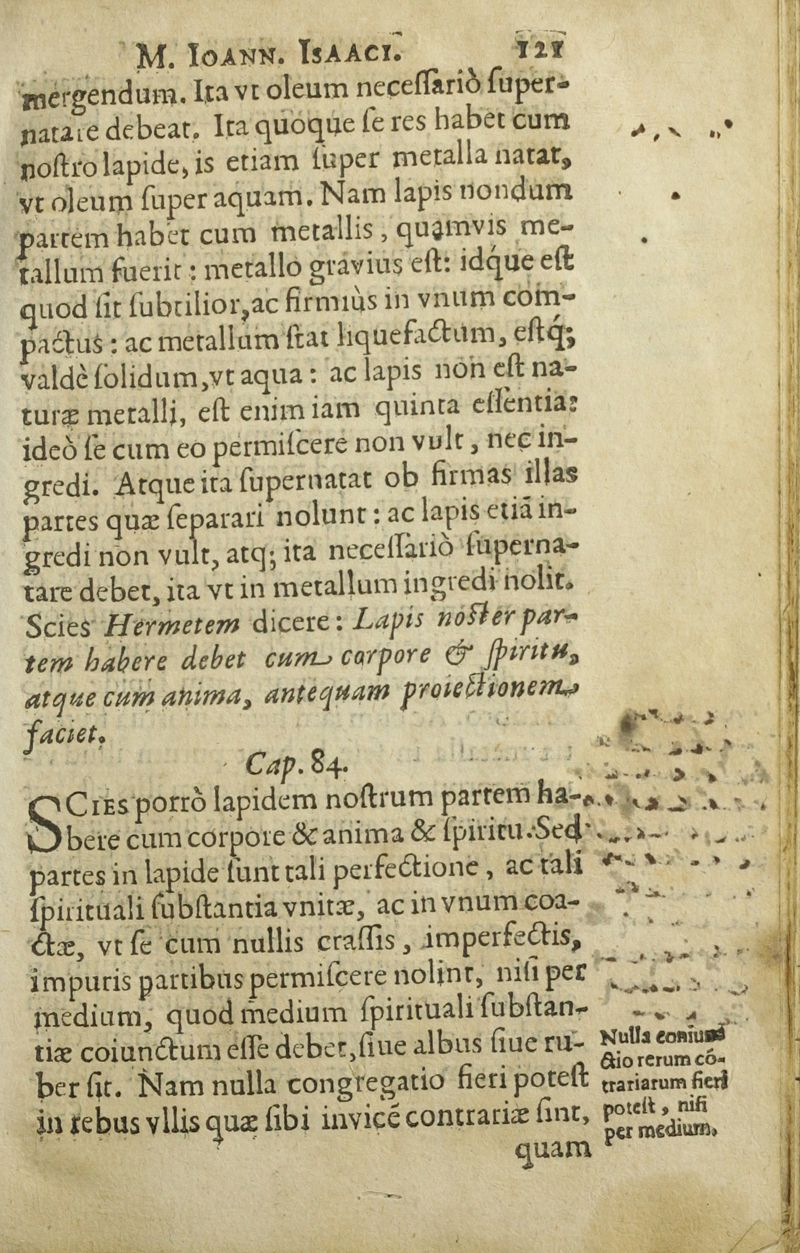 M. IOANN. ISAACI. 121
mergendum. Ita vt oleum neceſſariò ſuper-
natare debeat. Ita quoque ſe res habet cum
noſtro lapide, is etiam ſuper metalla natat,
vt oleum ſuper aquam. Nam lapis nondum
partem habet cum metallis, quamvis me-
tallum fuerit: metallo gravius eſt: idque eſt
quod ſit ſubtilior, ac firmiùs in vnum com-
pactus: ac metallum ſtat liquefactum, eſtq;
valdè ſolidum, vt aqua: ac lapis non eſt na-
turæ metalli, eſt enim iam quinta eſſentia:
ideò ſe cum eo permiſcere non vult, nec in-
gredi. Atque ita ſupernatat ob firmas illas
partes quæ ſeparari nolunt: ac lapis etiā in-
gredi non vult, atq; ita neceſſariò ſuperna-
tare debet, ita vt in metallum ingredi nolit.
Scies Hermetem dicere: Lapis noſter par-
tem habere debet cum corpore & ſpiritu,
atque cum anima, antequam proiectionem
faciet.
Cap. 84.
SCIES porrò lapidem noſtrum partem ha-
bere cum corpore & anima & ſpiritu. Sed
partes in lapide ſunt tali perfectione, ac tali
ſpirituali ſubſtantia vnitæ, ac in vnum coa-
ctæ, vt ſe cum nullis craſſis, imperfectis,
impuris partibus permiſcere nolint, niſi per
medium, quod medium ſpirituali ſubſtan-
tiæ coiunctum eſſe debet, ſiue albus ſiue ru-
ber ſit. Nam nulla congregatio fieri poteſt
in rebus vllis quæ ſibi invicē contrariæ ſint,
quam
Nulla coniun-
ctio rerum cō-
trariarum fieri
poteſt, niſi
per medium.